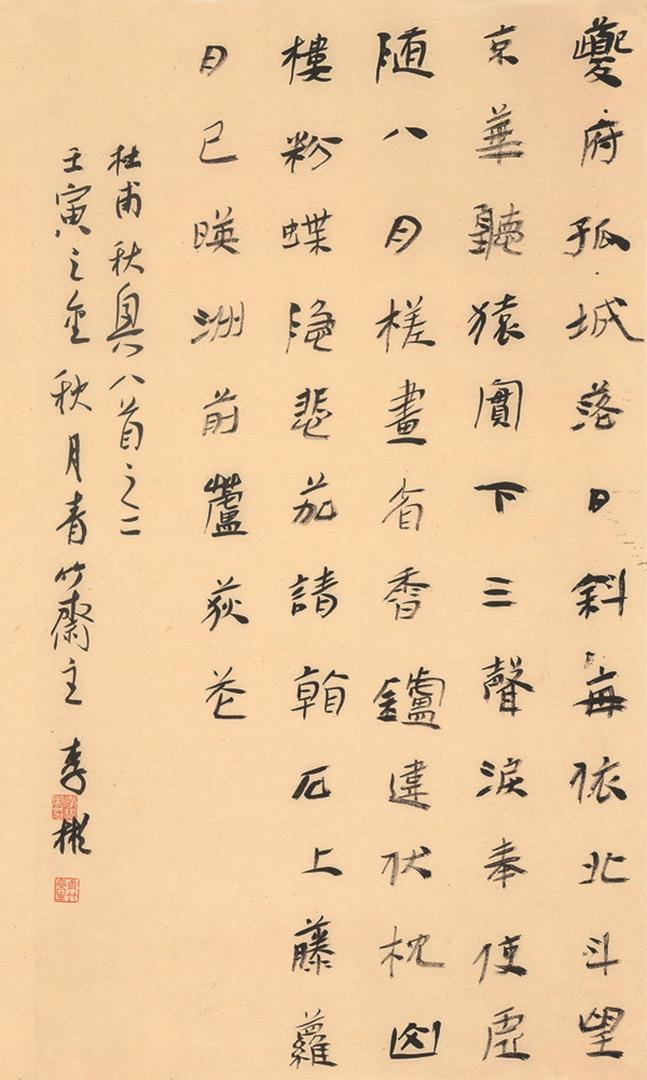 夔府孤城落日斜每依北斗望
京華聽猿實下三聲淚奉使虛
随八月槎畫省香鑪違伏枕山
樓粉蝶隐悲茄請看石上藤蘿
月已暎洲前蘆荻花
杜甫秋興八首之二
壬寅之金秋月青竹齋主李彬